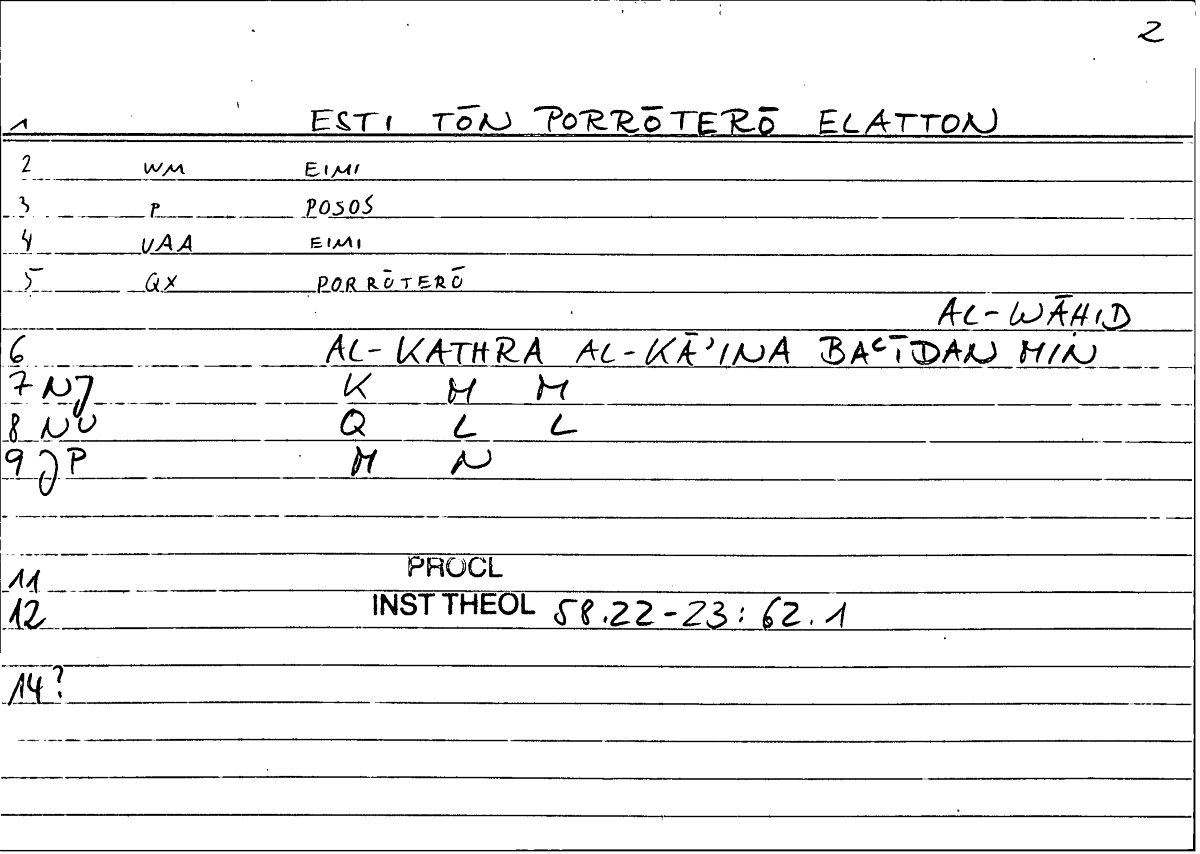 2
1 ESTI TŌN PORRŌTERŌ ELATTON
2 WM EIMI
3 P POSOS
4 VAA EIMI
5 QX PORRŌTERŌ
AL-WĀHID
6 AL-KATHRA AL-KĀ'INA BAʿĪDAN MIN
7 NJ K M M
8 NU Q L L
9 JP M N
11 PROCL
12 INST THEOL 58.22-23:62.1
14?